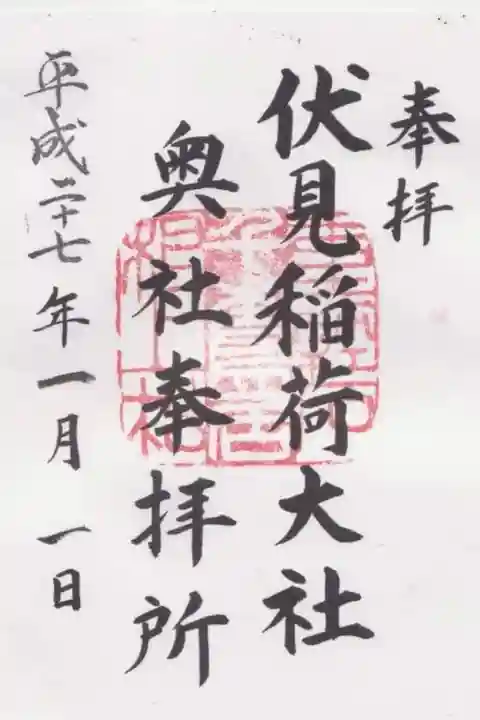 奉拝
伏見稲荷大社
奥社奉拝所
平成二十七年一月一日